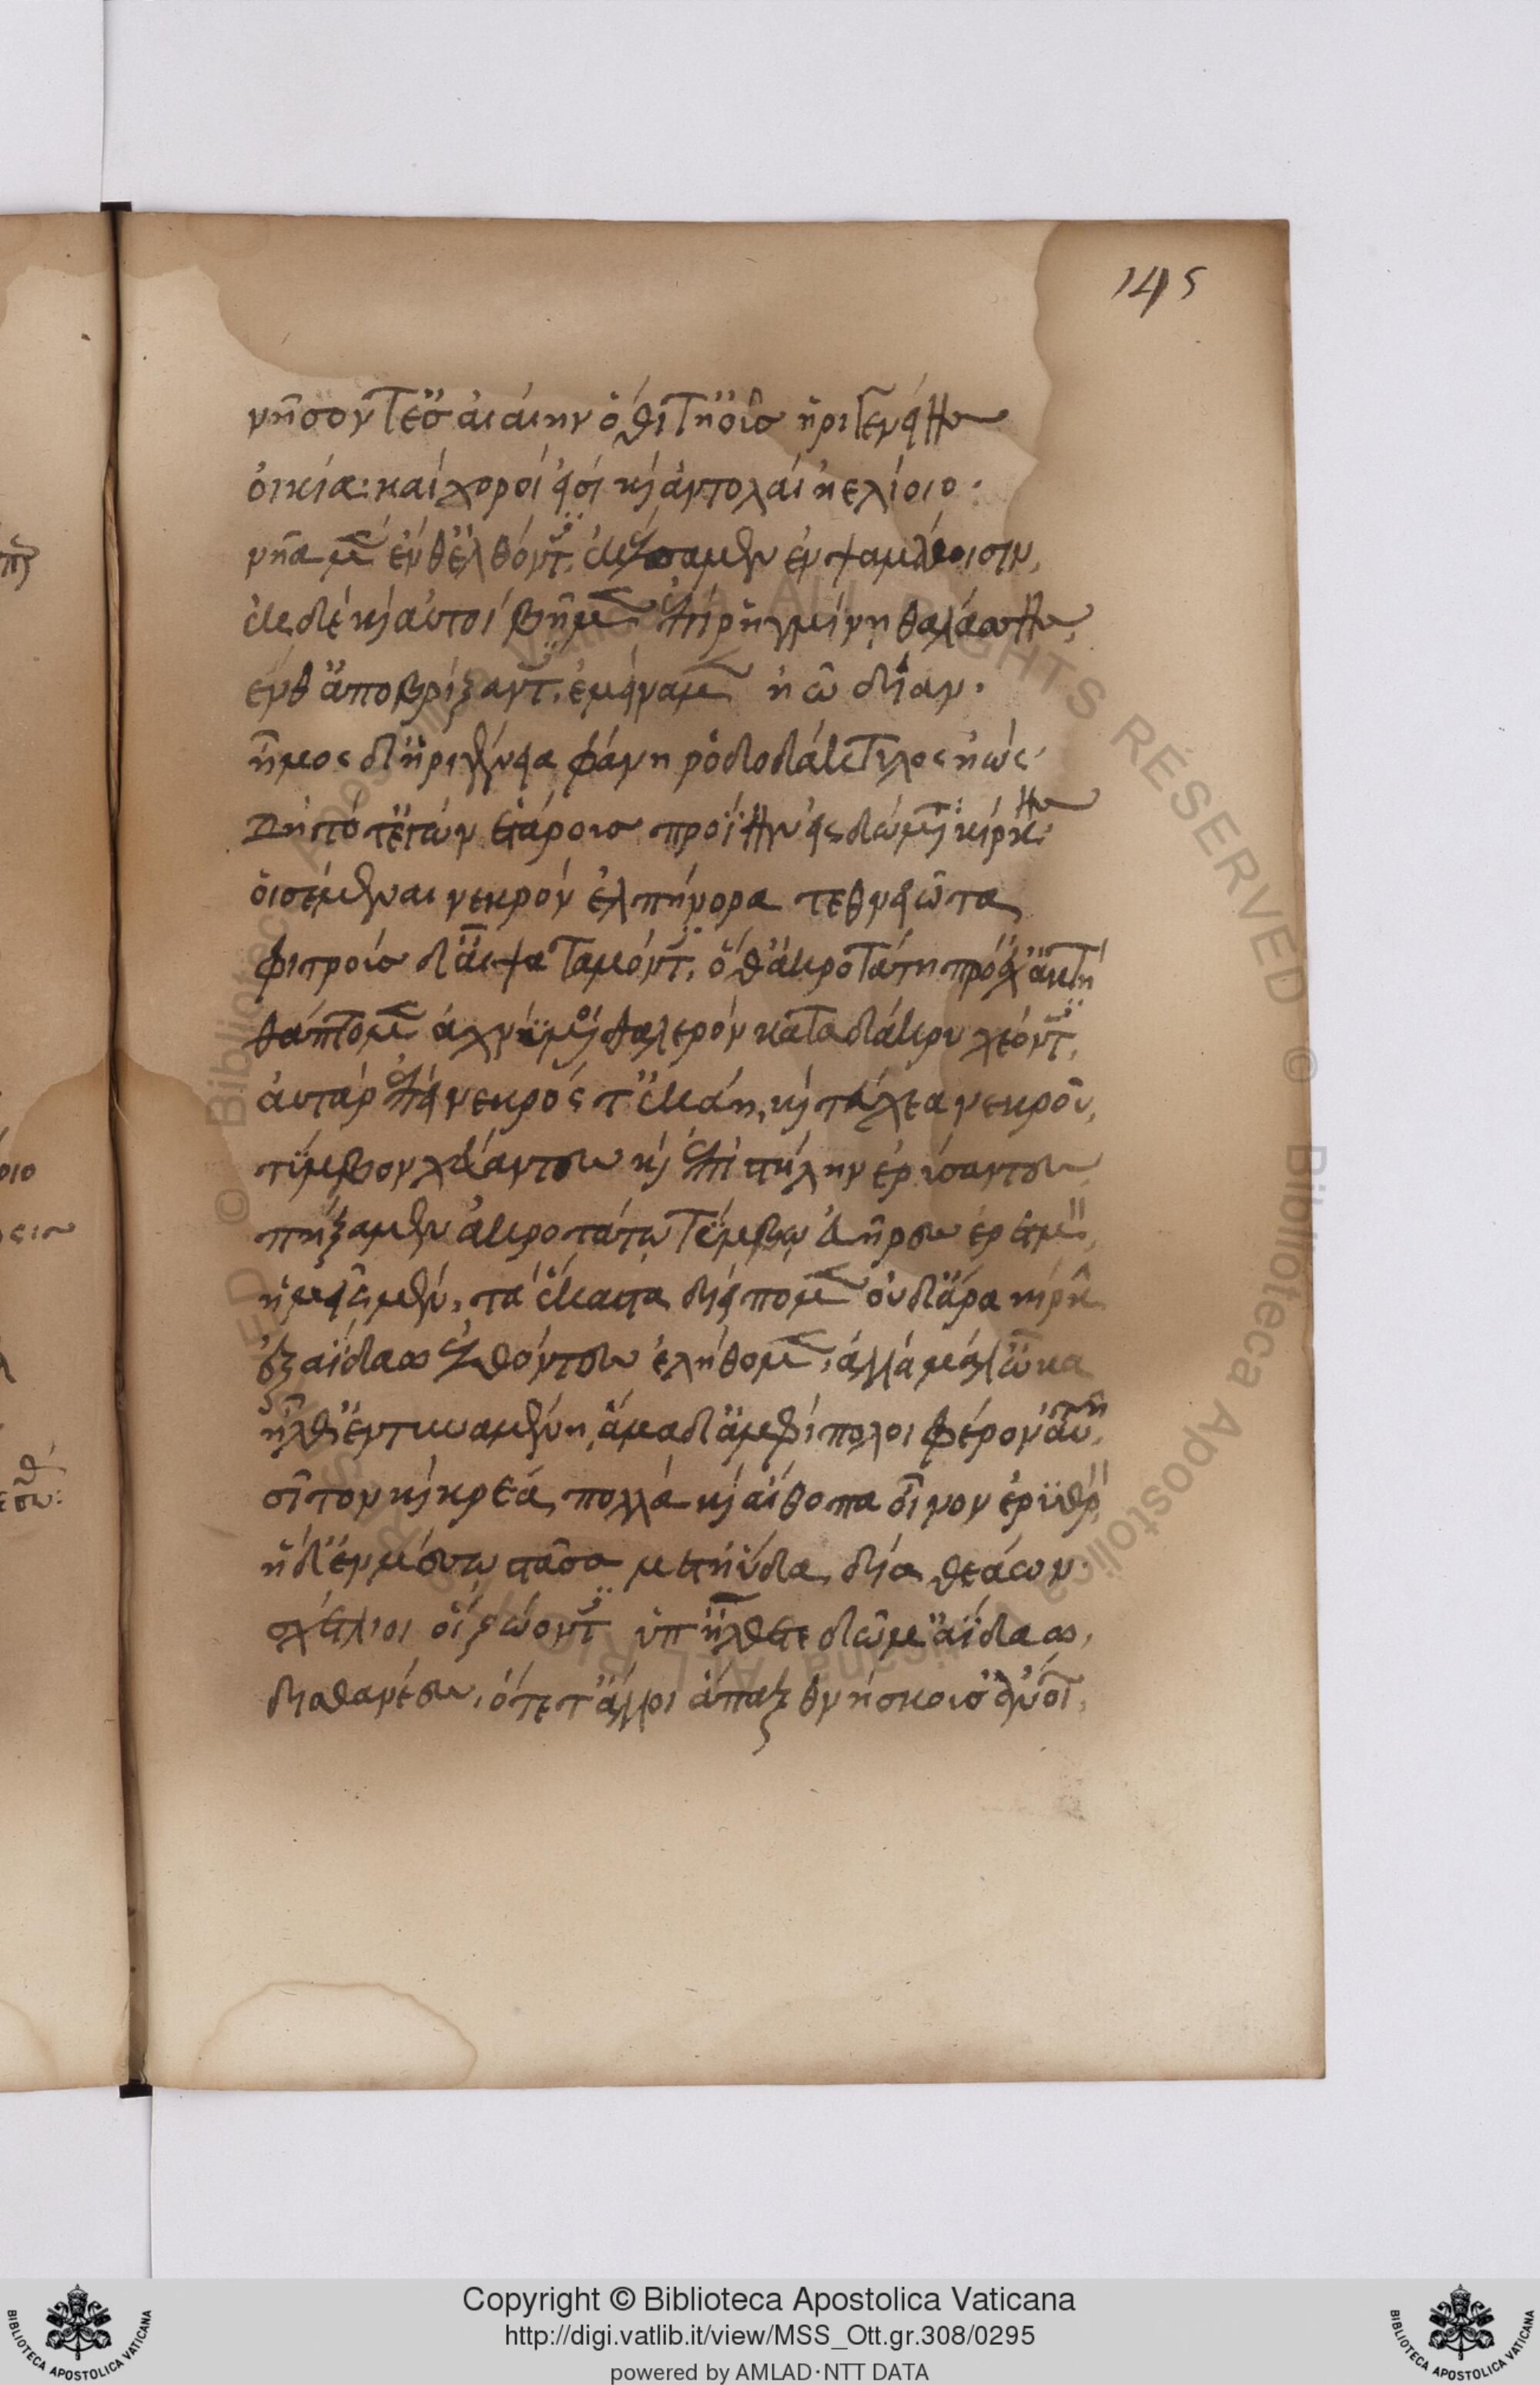 145
νῆσόν τ' ἐς αἰαίην ὅθι τ' ἠοῦς ἠριγενείης
οἰκία: καὶ χοροί εἰσι καὶ ἀντολαὶ ἠελίοιο.
νῆα μὲν ἔνθ' ἐλθόντες ἐκέλσαμεν ἐν ψαμάθοισιν,
ἐκ δὲ καὶ αὐτοὶ βῆμεν ἐπὶ ῥηγμῖνι θαλάσσης,
ἔνθ' ἀποβρίξαντες ἐμείναμεν ἠῶ δῖαν.
ἦμος δ' ἠριγένεια φάνη ῥοδοδάκτυλος ἠώς.
δὴ τότ' ἐγὼν ἑτάρους προΐειν ἐς δώματα κίρκης
οἰσέμεναι νεκρὸν ἐλπήνορα τεθνειῶτα
φιτροὺς δ' αἶψα ταμόντες ὅθ' ἀκροτάτη πρόεχ' ἀκτή
θάπτομεν ἀχνύμενοι θαλερὸν κατὰ δάκρυ χέοντες,
αὐτὰρ ἐπεὶ νεκρός τ' ἐκάη, καὶ τεύχεα νεκροῦ,
τύμβον χεύαντες καὶ ἐπὶ στήλην ἐρύσαντες
πήξαμεν ἀκροτάτω τύμβω εὐῆρες ἐρετμόν,
ἡμεῖς μὲν, τὰ ἕκαστα διείπομεν οὐδ' ἄρα κίρκην
ἐξ ἀΐδαο ἐλθόντες ἐλήθομεν, ἀλλὰ μάλ' ὦκα
ἦλθ' ἐντυναμένη, ἅμα δ' ἀμφίπολοι φέρον αὐτῆ
σῖτον καὶ κρέα πολλὰ καὶ αἴθοπα οἶνον ἐρυθρόν
ἡ δ' ἐν μέσω στᾶσα μετηύδα δῖα θεάων.
σχέτλιοι οἳ ζώοντες ὑπήλθετε δῶμ' ἀΐδαο,
δισθανέες, ὅτε τ' ἄλλοι ἅπαξ θνήσκουσ' ἄνθρωποι,
Copyright © Biblioteca Apostolica Vaticana
http://digi.vatlib.it/view/MSS_Ott.gr.308/0295
powered by AMLAD·NTT DATA